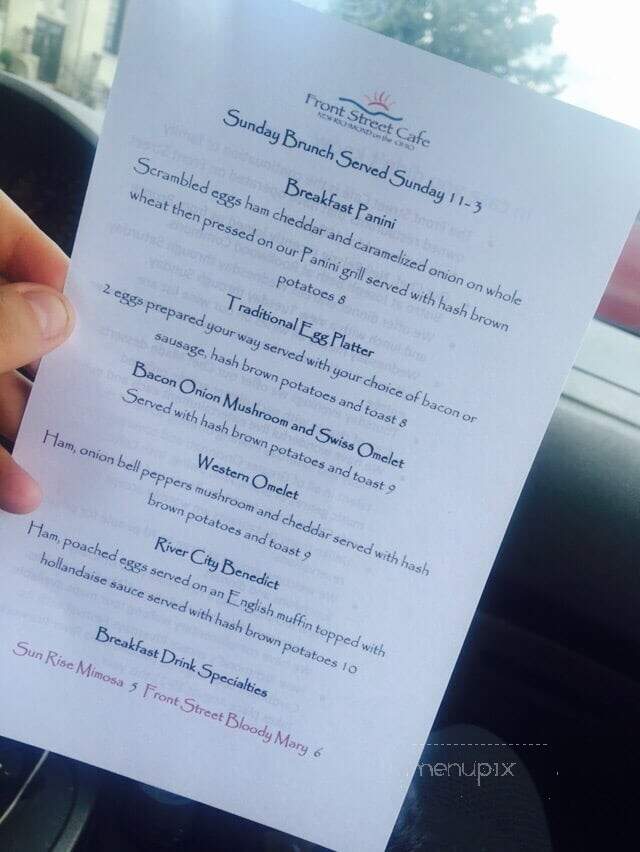 Front Street Cafe
NEW RICHMOND on the OHIO
Sunday Brunch Served Sunday 11-3
Breakfast Panini
Scrambled eggs ham cheddar and caramelized onion on whole
wheat then pressed on our Panini grill served with hash brown
potatoes 8
Traditional Egg Platter
2 eggs prepared your way served with your choice of bacon or
sausage, hash brown potatoes and toast 8
Bacon Onion Mushroom and Swiss Omelet
Served with hash brown potatoes and toast 9
Western Omelet
Ham, onion bell peppers mushroom and cheddar served with hash
brown potatoes and toast 9
River City Benedict
Ham, poached eggs served on an English muffin topped with
hollandaise sauce served with hash brown potatoes 10
Breakfast Drink Specialties
Sun Rise Mimosa 5 Front Street Bloody Mary 6
menupix